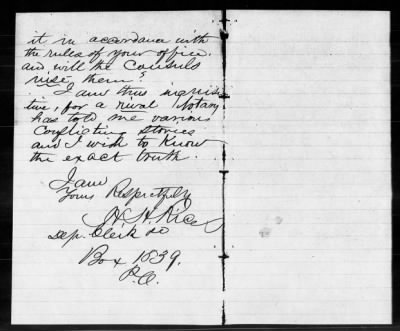 it in accordance with
the rules of your office.
and will the Consuls
vise them?
I am thus inquisi
tive, for a rival Notary
has told me various
Conflicting stories
and I wish to Know
the exact truth.
I am
Yours Respectfully
H. H. Rice
Dep. Clerk
Box 1839.
P.O.